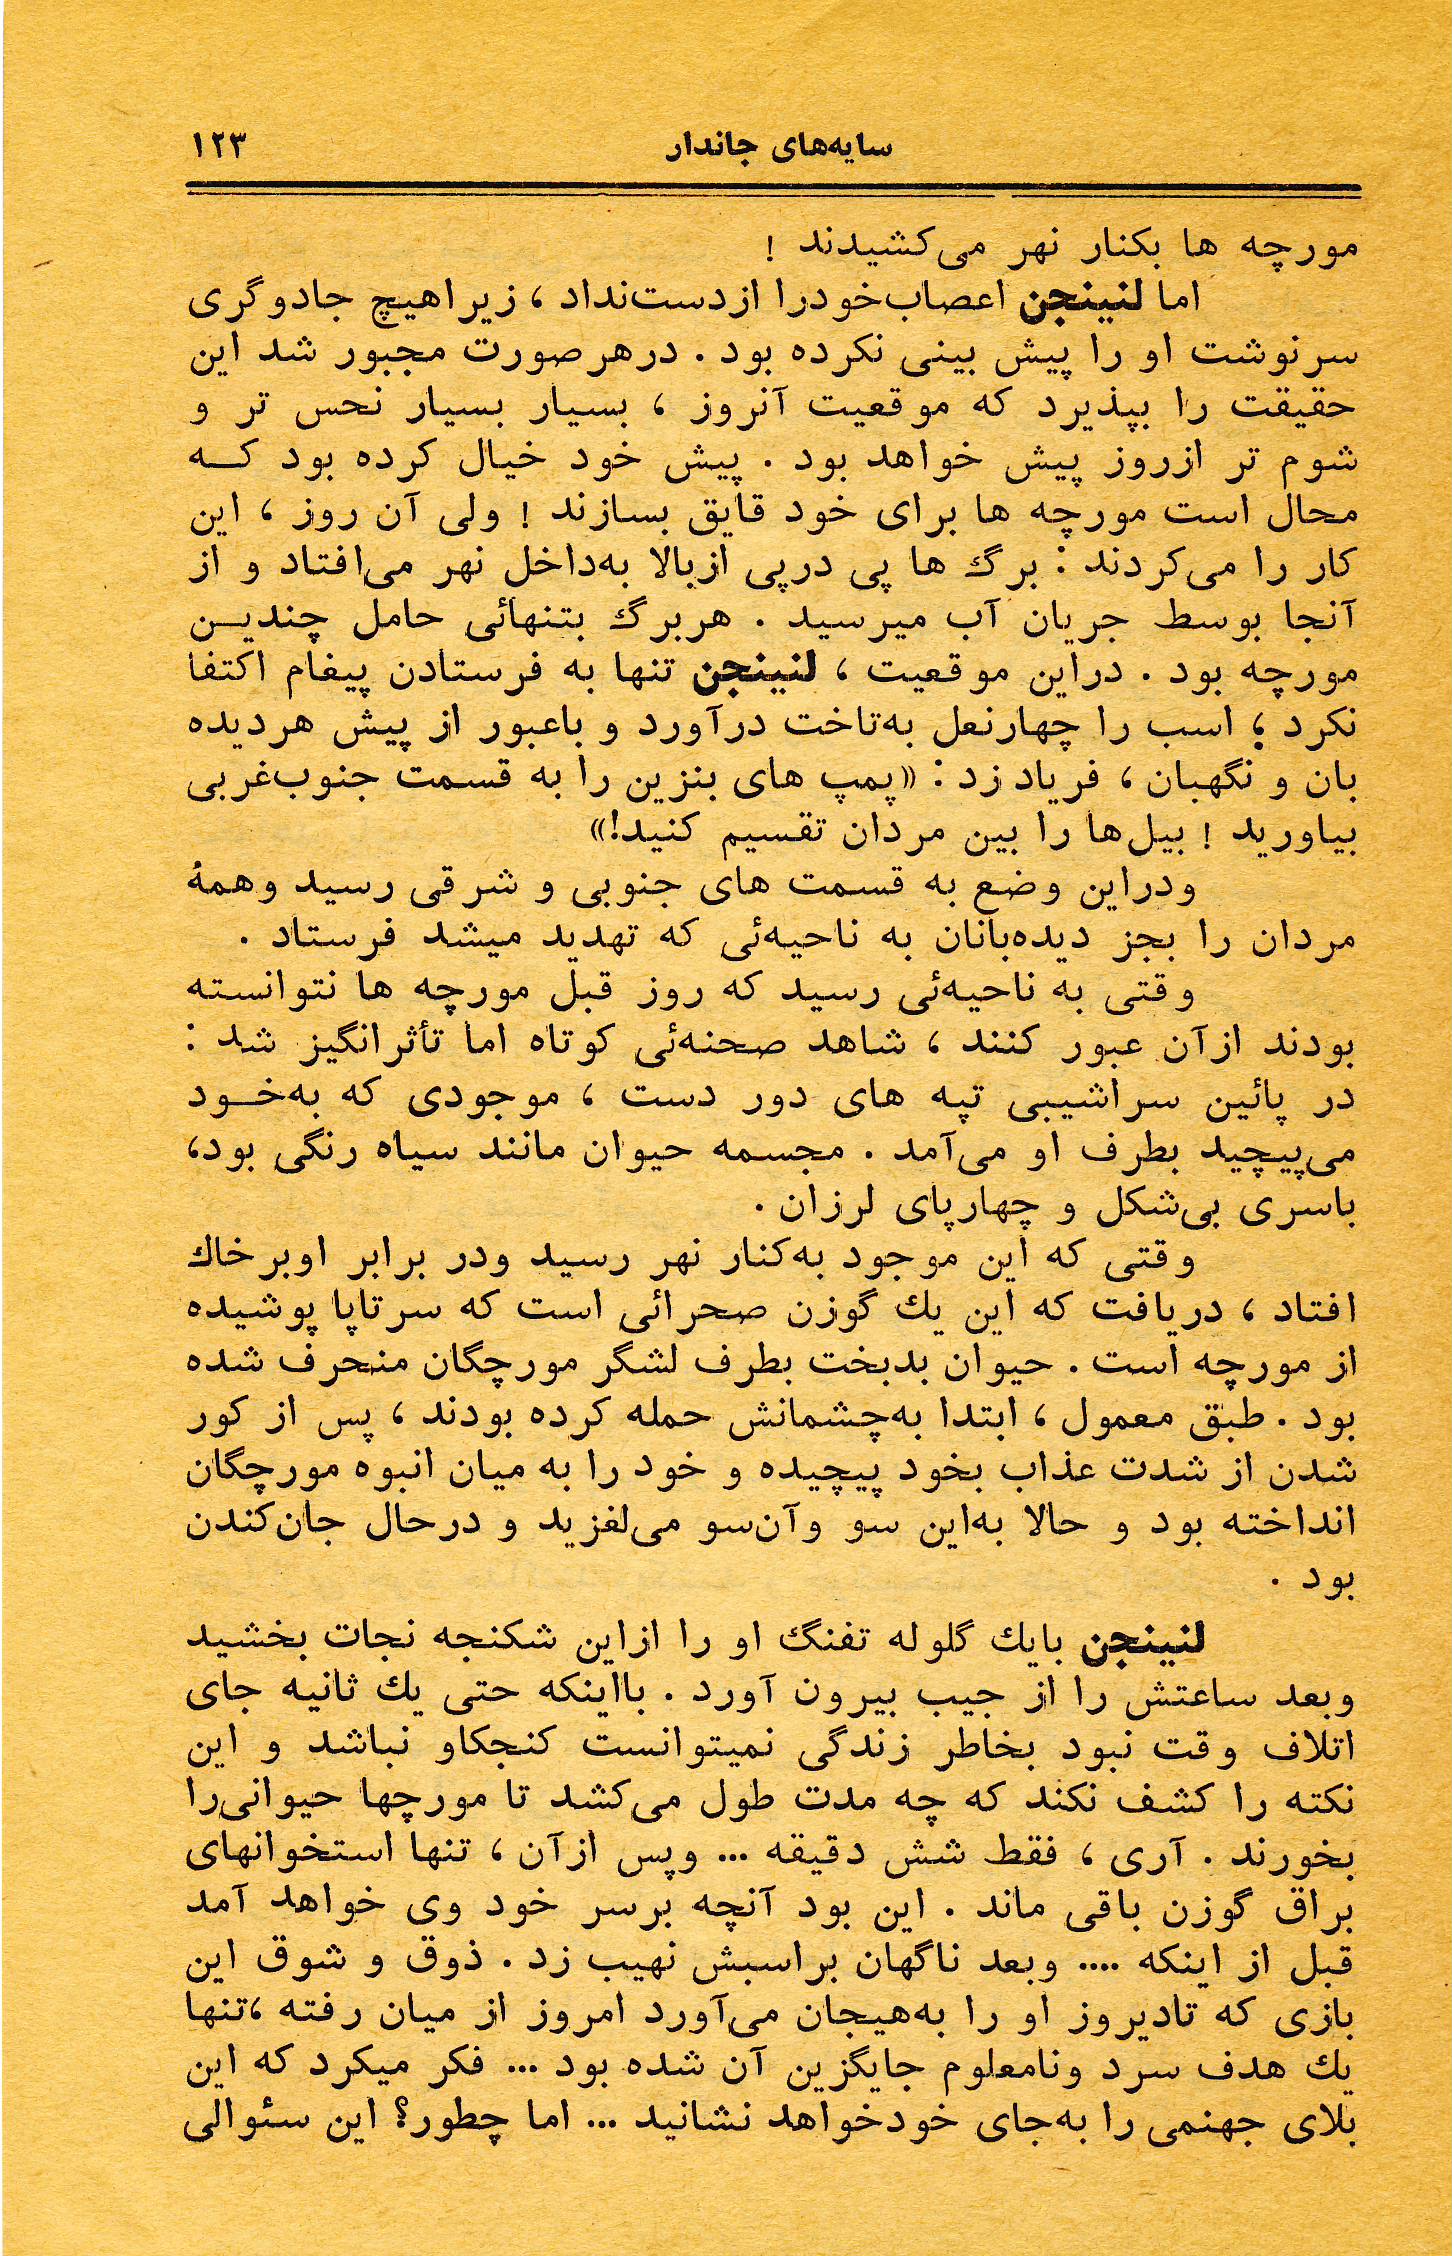 سایه‌های جاندار
۱۲۳
مورچه ها بکنار نهر می‌کشیدند !
اما لنینجن اعصاب‌خودرا ازدست‌نداد ، زیراهیچ جادوگری
سرنوشت او را پیش بینی نکرده بود . درهرصورت مجبور شد این
حقیقت را بپذیرد که موقعیت آنروز ، بسیار بسیار نحس تر و
شوم تر ازروز پیش خواهد بود . پیش خود خیال کرده بود کـه
محال است مورچه ها برای خود قایق بسازند ! ولی آن روز ، این
کار را می‌کردند : برگ ها پی درپی ازبالا به‌داخل نهر می‌افتاد و از
آنجا بوسط جریان آب میرسید . هربرگ بتنهائی حامل چندیـن
مورچه بود . دراین موقعیت ، لنینجن تنها به فرستادن پیغام اکتفا
نکرد ؛ اسب را چهارنعل به‌تاخت درآورد و باعبور از پیش هردیده
بان و نگهبان ، فریاد زد : «پمپ های بنزین را به قسمت جنوب‌غربی
بیاورید ! بیل‌ها را بین مردان تقسیم کنید!»
ودراین وضع به قسمت های جنوبی و شرقی رسید وهمهٔ
مردان را بجز دیده‌بانان به ناحیه‌ئی که تهدید میشد فرستاد .
وقتی به ناحیه‌ئی رسید که روز قبل مورچه ها نتوانسته
بودند ازآن عبور کنند ، شاهد صحنه‌ئی کوتاه اما تأثرانگیز شد :
در پائین سراشیبی تپه های دور دست ، موجودی که به‌خـود
می‌پیچید بطرف او می‌آمد . مجسمه حیوان مانند سیاه رنگی بود،
باسری بی‌شکل و چهارپای لرزان .
وقتی که این موجود به‌کنار نهر رسید ودر برابر اوبرخاك
افتاد ، دریافت که این یك گوزن صحرائی است که سرتاپا پوشیده
از مورچه است . حیوان بدبخت بطرف لشگر مورچگان منحرف شده
بود . طبق معمول ، ابتدا به‌چشمانش حمله کرده بودند ، پس از کور
شدن از شدت عذاب بخود پیچیده و خود را به میان انبوه مورچگان
انداخته بود و حالا به‌این سو وآن‌سو می‌لغزید و درحال جان‌کندن
بود .
لنینجن بایك گلوله تفنگ او را ازاین شکنجه نجات بخشید
وبعد ساعتش را از جیب بیرون آورد . بااینکه حتی یك ثانیه جای
اتلاف وقت نبود بخاطر زندگی نمیتوانست کنجکاو نباشد و این
نکته را کشف نکند که چه مدت طول می‌کشد تا مورچها حیوانی‌را
بخورند . آری ، فقط شش دقیقه ... وپس ازآن ، تنها استخوانهای
براق گوزن باقی ماند . این بود آنچه برسر خود وی خواهد آمد
قبل از اینکه .... وبعد ناگهان براسبش نهیب زد . ذوق و شوق این
بازی که تادیروز او را به‌هیجان می‌آورد امروز از میان رفته ،تنها
یك هدف سرد ونامعلوم جایگزین آن شده بود ... فکر میکرد که این
بلای جهنمی را به‌جای خودخواهد نشانید ... اما چطور؟ این سئوالی